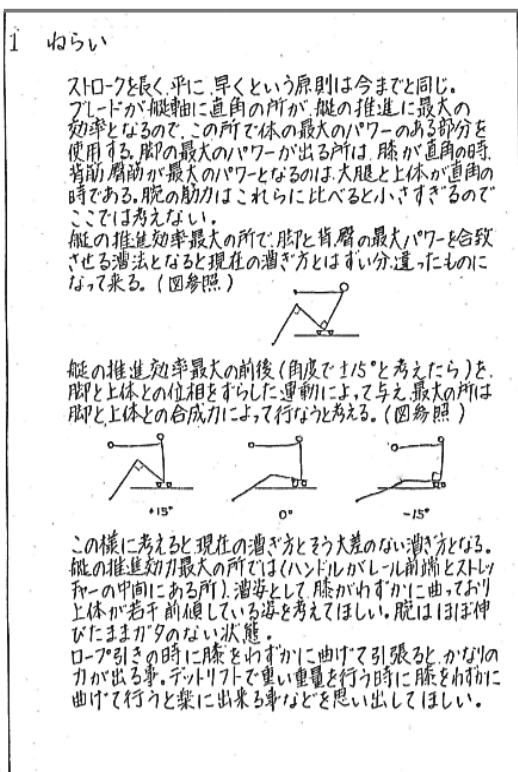 1 ねらい
ストロークを長く、平に、早くという原則は今までと同じ。
ブレードが艇軸に直角の所が、艇の推進に最大の
効率となるので、この所で体の最大のパワーのある部分を
使用する。脚の最大のパワーが出る所は、膝が直角の時、
背筋、臀筋が最大のパワーとなるのは、大腿と上体が直角の
時である。腕の筋力はこれらに比べると小さすぎるので
ここでは考えない。
艇の推進効率最大の所で、脚と背、臀の最大パワーを合致
させる漕法となると現在の漕ぎ方とはずい分、違ったものに
なって来る。(図参照)
艇の推進効率最大の前後(角度で±15°と考えたら)を、
脚と上体との位相をずらした運動によって与え、最大の所は
脚と上体との合成力によって行なうと考える。(図参照)
+15°
0°
-15°
この様に考えると、現在の漕ぎ方とそう大差のない漕ぎ方となる。
艇の推進効力最大の所では(ハンドルがレール前端とストレッ
チャーの中間にある所)、漕姿として、膝がわずかに曲っており
上体が若干前傾している姿を考えてほしい。腕はほぼ伸
びたままガタのない状態。
ロープ引きの時に膝をわずかに曲げて引張ると、かなりの
力が出る事。デットリフトで重い重量を行う時に膝をわずかに
曲げて行うと楽に出来る事などを思い出してほしい。